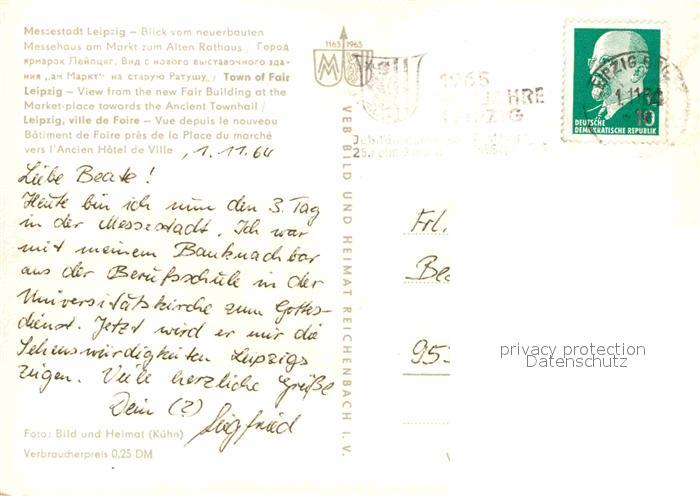 Messestadt Leipzig – Blick vom neuerbauten
Messehaus am Markt zum Alten Rathaus / Город
ярмарок Лейпциг. Вид с нового выставочного зда-
ния „ам Маркт“ на старую Ратушу. / Town of Fair
Leipzig – View from the new Fair Building at the
Market-place towards the Ancient Townhall /
Leipzig, ville de Foire – Vue depuis le nouveau
Bâtiment de Foire près de la Place du marché
vers l'Ancien Hôtel de Ville
1.11.64
Liebe Beate!
Heute bin ich nun den 3. Tag
in der Messestadt. Ich war
mit meinem Banknachbar
aus der Berufsschule in der
Universitätskirche zum Gottes-
dienst. Jetzt wird er mir die
Sehenswürdigkeiten Leipzigs
zeigen. Viele herzliche Grüße
Dein (?) Siegfried
Foto: Bild und Heimat (Kühn)
Verbraucherpreis 0,25 DM
VEB BILD UND HEIMAT REICHENBACH I. V.
1165 1965
M
1965
JAHRE
LEIPZIG
LEIPZIG
1.11.64
10
DEUTSCHE
DEMOKRATISCHE REPUBLIK
Frl.
Bea
953
privacy protection
Datenschutz